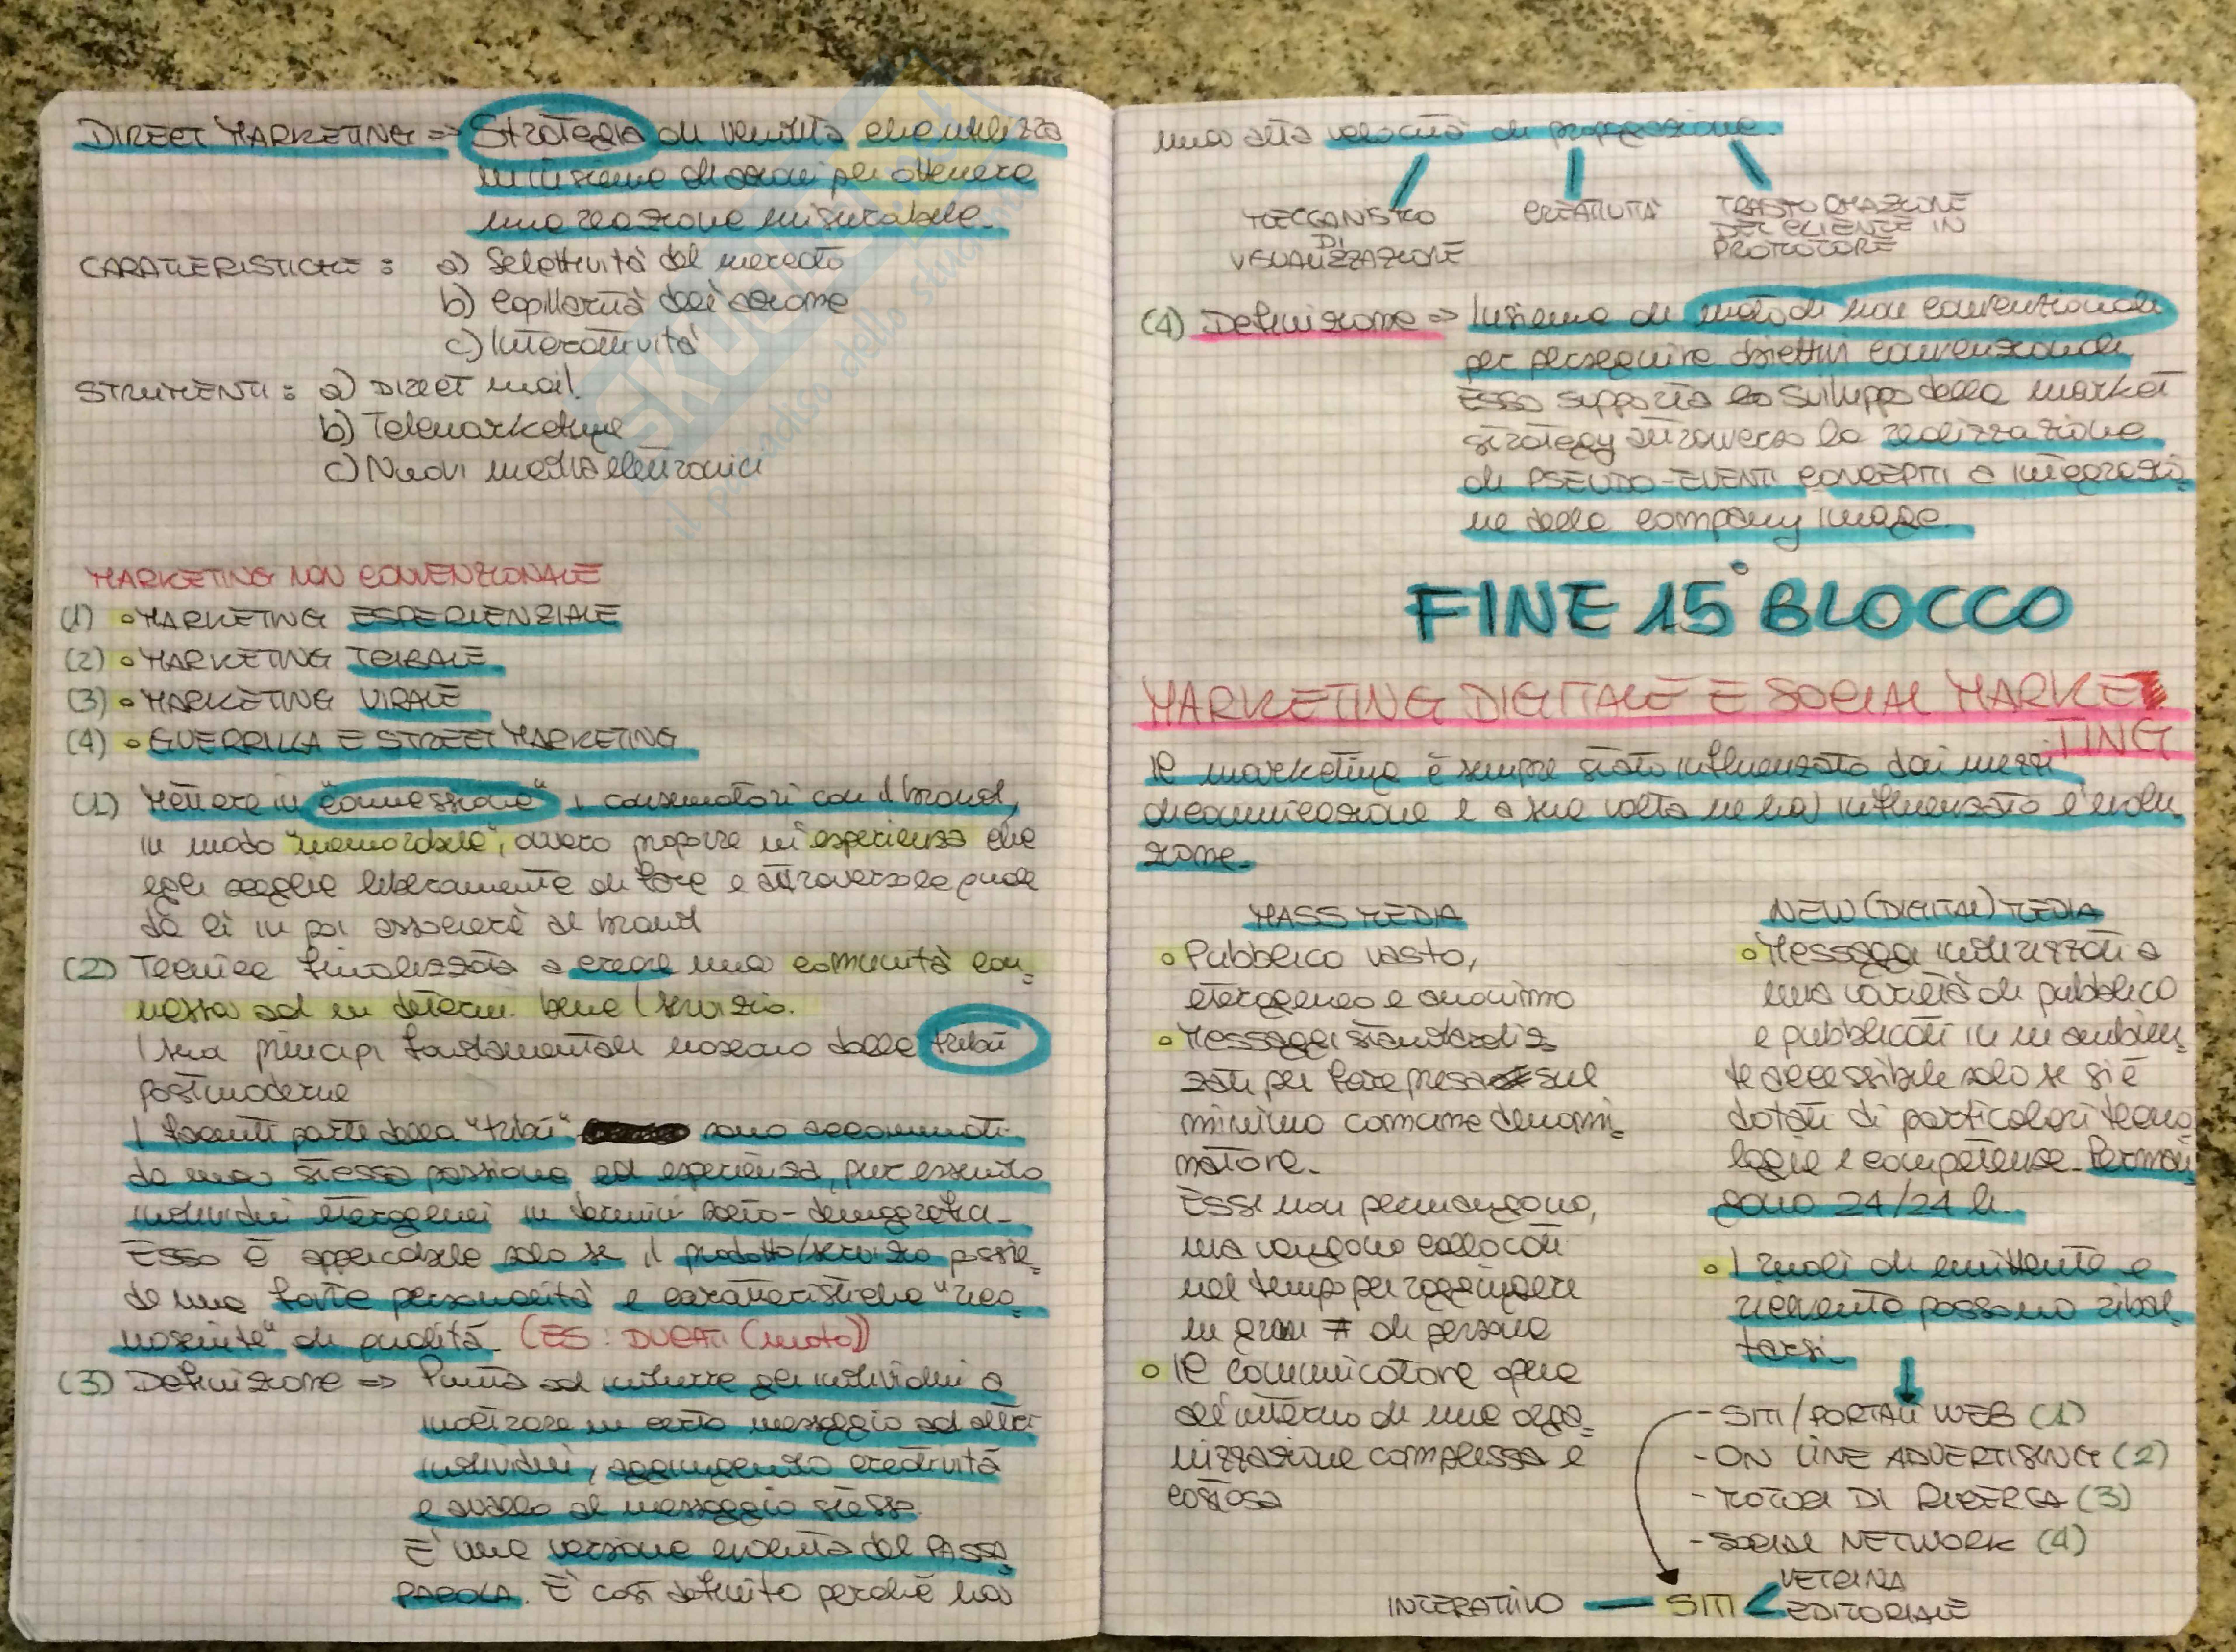 DIRECT MARKETING => Strategia di vendita che utilizza
un insieme di azioni per ottenere
una reazione misurabile.
CARATTERISTICHE : a) Selettività del mercato
b) Capillarità dell'azione
c) Interattività
STRUMENTI : a) DIRECT mail.
b) Telemarketing
c) Nuovi media elettronici
MARKETING NON CONVENZIONALE
(1) MARKETING ESPERIENZIALE
(2) MARKETING TRIBALE
(3) MARKETING VIRALE
(4) GUERRILLA E STREET MARKETING
(1) Mettere in "connessione" i consumatori con il brand,
in modo "memorabile", ovvero proporre un'esperienza che
egli sceglie liberamente di fare e attraverso le quale
da lì in poi assocerà al brand
(2) Tecnica finalizzata a creare una comunità con=
nessa ad un determ. bene/servizio.
I suoi principi fondamentali nascono dalle tribù
postmoderne
I facenti parte della "tribù" sono accomunati
da una stessa passione ed esperienza, pur essendo
individui eterogenei in termini socio-demografici.
Esso è applicabile solo se il prodotto/servizio possie=
de una forte personalità e caratteristiche "rico=
nosciute" di qualità. (ES: DUCATI (moto))
(3) Definizione => Punta ad indurre gli individui a
inoltrare un certo messaggio ad altri
individui, aggiungendo creatività
e avallo al messaggio stesso.
E' una versione evoluta del PASSA
PAROLA. E' così definito perchè ha
una alta velocità di propagazione.
MECCANISMO DI VISUALIZZAZIONE
CREATIVITÀ
TRASFORMAZIONE
DEL CLIENTE IN
PROMOTORE
(4) Definizione => Insieme di metodi non convenzionali
per perseguire obiettivi convenzionali
Esso supporta lo sviluppo della market
strategy attraverso la realizzazione
di PSEUDO-EVENTI CONCEPITI a integrazio=
ne della company image.
FINE 15° BLOCCO
MARKETING DIGITALE E SOCIAL MARKE
TING
Il marketing è sempre stato influenzato dai mezzi
di comunicazione e a sua volta ne ha influenzato l'evolu
zione.
MASS MEDIA
Pubblico vasto,
eterogeneo e anonimo
Messaggi standardiz=
zati per fare presa sul
minimo comune denomi=
natore.
Essi non permangono,
ma vengono collocati
nel tempo per raggiungere
un gran # di persone
Il comunicatore opera
all'interno di una orga=
nizzazione complessa e
costosa
NEW (DIGITAL) MEDIA
Messaggi indirizzati a
una varietà di pubblico
e pubblicati in un ambien=
te accessibile solo se si è
dotati di particolari tecno
logie e competenze. Perman
gono 24/24 h.
I ruoli di emittente e
ricevente possono ribal=
tarsi.
- SITI/PORTALI WEB (1)
- ON LINE ADVERTISING (2)
- MOTORI DI RICERCA (3)
- SOCIAL NETWORK (4)
INTERATTIVO — SITI < VETRINA
EDITORIALE